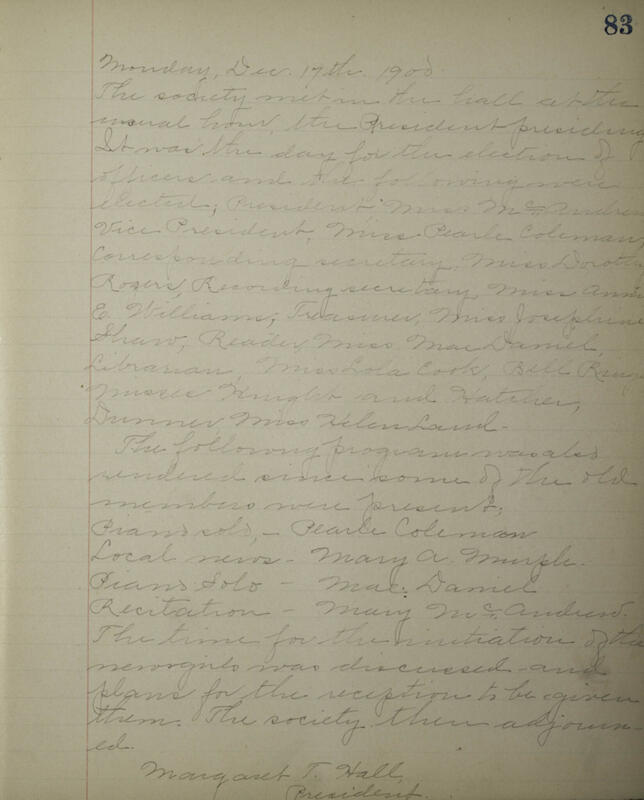 83
Monday, Dec. 17th. 1900.
The society met in the hall at the
usual hour, the President presiding
It was the day for the election of
officers and the following were
elected; President Miss McAndrew
Vice President, Miss Pearle Coleman,
Corresponding secretary, Miss Doroth
Rogers, Recording secretary, Miss Annie
E. Williams; Treasurer, Miss Josephine
Shaw, Reader, Miss MacDaniel,
Librarian, Miss Lola Cook, Bell
Misses Knight and Hatcher,
Dunner Miss Helen Land.
The following program was also
rendered since some of the old
members were present;
Piano solo, - Pearle Coleman
Local news - Mary A.
Piano Solo - Mac. Daniel
Recitation - Mary McAndrew.
The time for the initiation of the
new girls was discussed and
plans for the reception to be given
them. The society then adjourn-
ed.
Margaret T. Hall,
President.